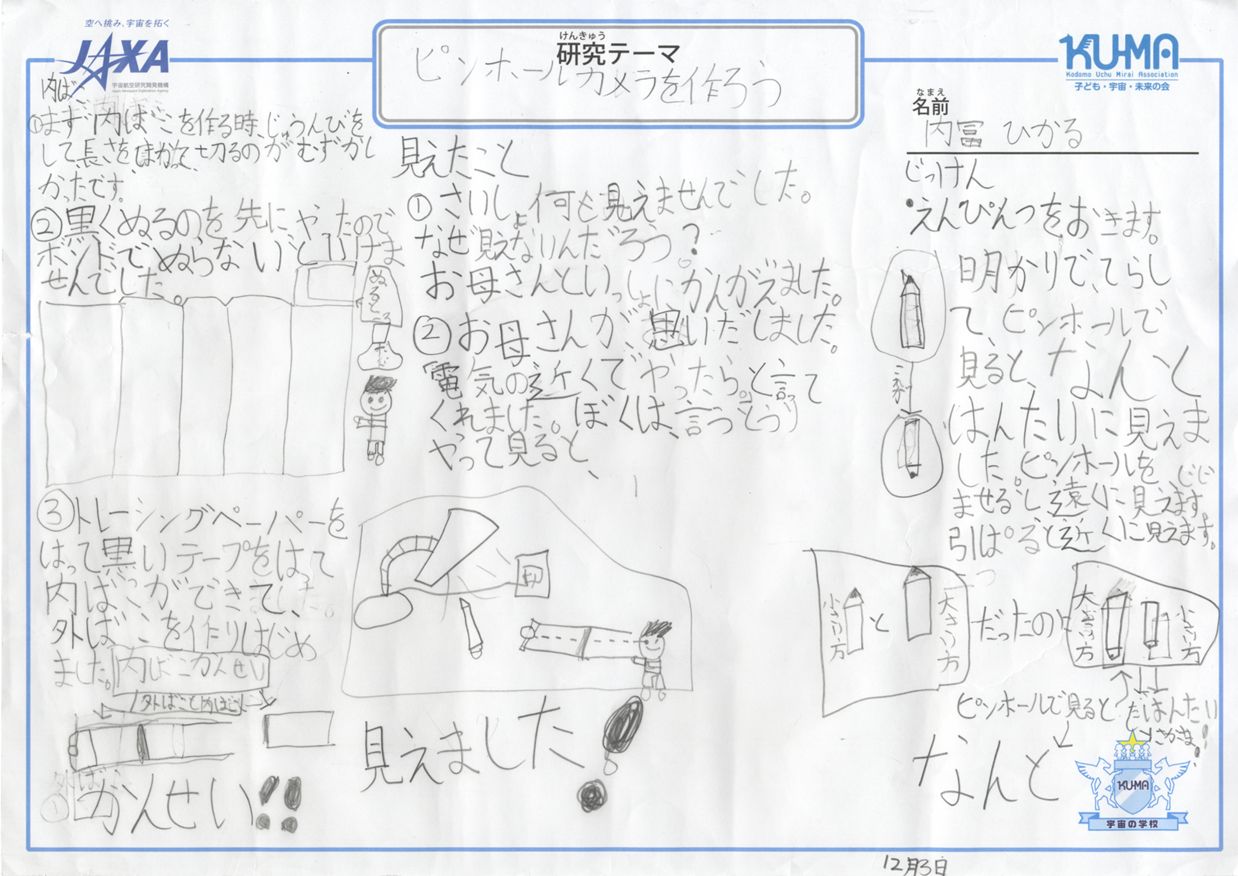 空へ挑み、宇宙を拓く
JAXA
宇宙航空研究開発機構
けんきゅう
研究テーマ
ピンホールカメラを作ろう
KU-MA
Kodomo Uchu Mirai Association
子ども・宇宙・未来の会
なまえ
名前
内冨 ひかる
内ばこ
①まず内ばこを作る時、じゅんびを
して長さをはかって切るのがむずかし
かったです。
②黒くぬるのを先にやったので
ボンドでぬらないといけま
せんでした。
ぬると
③トレーシングペーパーを
はって黒いテープをはって
内ばこができて、
外ばこを作りはじめ
ました。
内ばこかんせい
外ばこと内ばこ
外ばこ
かんせい!!
見えたこと
①さいしょ何も見えませんでした。
なぜ見えないんだろう?
お母さんといっしょにかんがえました。
②お母さんが、思いだしました。
電気の近くでやったら。と言って
くれました。ぼくは、言うとうり
やって見ると、
切
見えました!
じっけん
・えんぴんつをおきます。
明かりで、てらし
て、ピンホールで
見ると、なんと
はんたいに見えま
した。ピンホールを
ちぢ
ませると遠くに見えます。
引っぱると近くに見えます。
小さい方
と
大きい方
だったのに
大きい方
小さい方
ピンホールで見ると
はんたい
さかさま!
なんと
KU-MA
宇宙の学校
12月3日